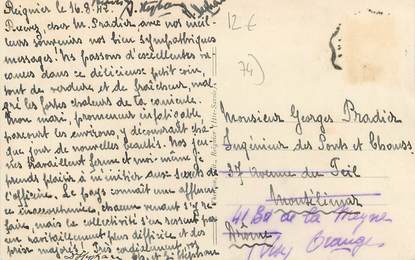 Reignier le 16.8.43.
Recevez, cher M. Pradier, avec nos meil-
leurs souvenirs nos bien sympathiques
messages. Nous passons d'excellentes va-
cances dans ce délicieux petit coin,
tout de verdure et de fraîcheur, mal-
gré les fortes chaleurs de la canicule.
Mon mari, promeneur infatigable,
parcourt les environs, y découvrant cha-
que jour de nouvelles beautés. Nos jeu-
nes travaillent ferme et moi-même je
prends plaisir à m'initier aux secrets de
l'officine. Le pays connaît une affluen-
ce inaccoutumée, chacun venant s'y re-
faire, mais la collectivité s'en ressent
car ravitaillement plus difficile et des
prix majorés. Très cordialement vôtre
12 €
74)
Monsieur Georges Pradier
Ingénieur des Ponts et Chauss
37 Avenue du Teil
Montélimar
41 Bd de la Meyne
Drôme
Orange